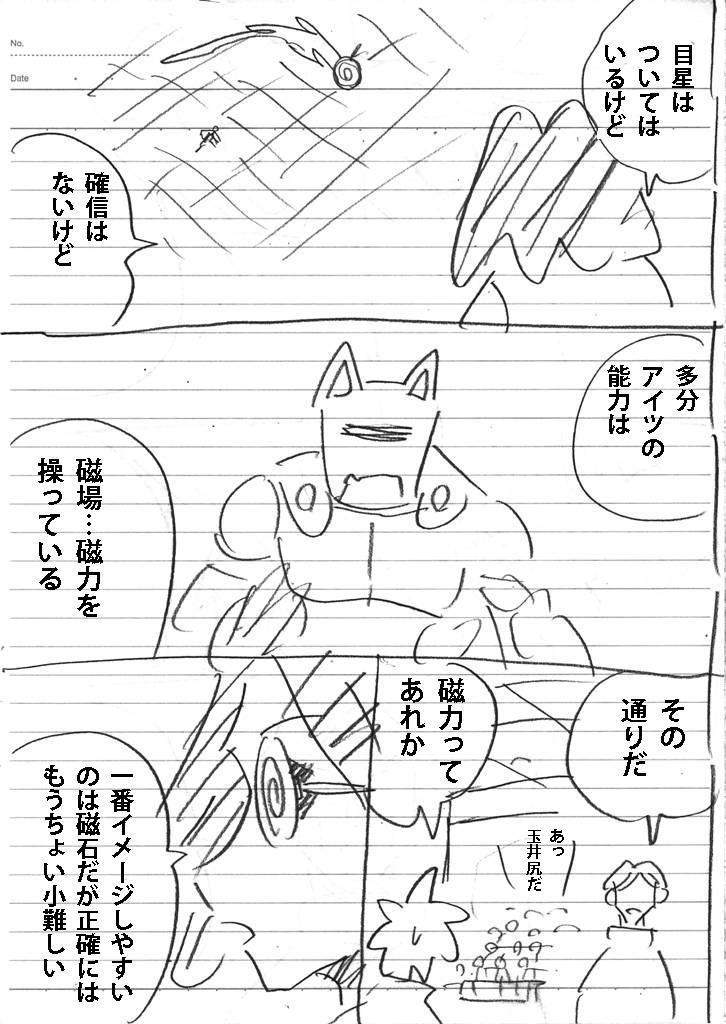 No.
Date
目星は
ついては
いるけど
確信は
ないけど
多分
アイツの
能力は
磁場…磁力を
操っている
その
通りだ
あっ
玉井尻だ
磁力って
あれか
一番イメージしやすい
のは磁石だが正確には
もうちょい小難しい